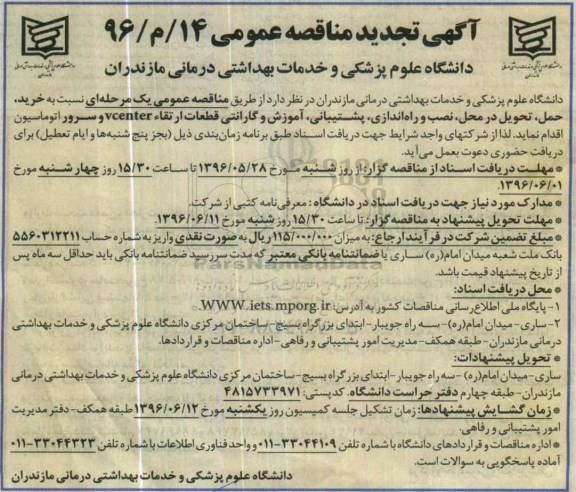 آگهی تجدید مناقصه عمومی ۱۴/م/۹۶
دانشگاه علوم پزشکی و خدمات بهداشتی درمانی مازندران
دانشگاه علوم پزشکی و خدمات بهداشتی درمانی مازندران در نظر دارد از طریق مناقصه عمومی یک مرحله‌ای نسبت به خرید،
حمل، تحویل در محل، نصب و راه‌اندازی، پشتیبانی، آموزش و گارانتی قطعات ارتقاء vcenter و سرور اتوماسیون
اقدام نماید. لذا از شرکتهای واجد شرایط جهت دریافت اسناد طبق برنامه زمان‌بندی ذیل (بجز پنج شنبه‌ها و ایام تعطیل) برای
دریافت حضوری دعوت بعمل می‌آید.
* مهلت دریافت اسناد از مناقصه گزار: از روز شنبه مورخ ۱۳۹۶/۰۵/۲۸ تا ساعت ۱۵/۳۰ روز چهار شنبه مورخ
۱۳۹۶/۰۶/۰۱.
* مدارک مورد نیاز جهت دریافت اسناد در دانشگاه: معرفی‌نامه کتبی از شرکت.
* مهلت تحویل پیشنهاد به مناقصه گزار: تا ساعت ۱۵/۳۰ روز شنبه مورخ ۱۳۹۶/۰۶/۱۱.
* مبلغ تضمین شرکت در فرآیند ارجاع: به میزان ۱۱۵/۰۰۰/۰۰۰ ریال به صورت نقدی واریز به شماره حساب ۵۵۶۰۳۱۲۲۱۱
بانک ملت شعبه میدان امام(ره) ساری یا ضمانتنامه بانکی معتبر که مدت سررسید ضمانتنامه بانکی باید حداقل سه ماه پس
از تاریخ پیشنهاد قیمت باشد.
* محل دریافت اسناد:
۱- پایگاه ملی اطلاع‌رسانی مناقصات کشور به آدرس: WWW.iets.mporg.ir
۲-ساری- میدان امام(ره)- سه راه جویبار- ابتدای بزرگراه بسیج- ساختمان مرکزی دانشگاه علوم پزشکی و خدمات بهداشتی
درمانی مازندران- طبقه همکف- مدیریت امور پشتیبانی و رفاهی- اداره مناقصات و قراردادها.
* تحویل پیشنهادات:
ساری-میدان امام(ره) -سه راه جویبار- ابتدای بزرگراه بسیج-ساختمان مرکزی دانشگاه علوم پزشکی و خدمات بهداشتی درمانی
مازندران- طبقه چهارم دفتر حراست دانشگاه. کدپستی: ۴۸۱۵۷۳۳۹۷۱
* زمان گشایش پیشنهادها: زمان تشکیل جلسه کمیسیون روز یکشنبه مورخ ۱۳۹۶/۰۶/۱۲ طبقه همکف- دفتر مدیریت
امور پشتیبانی و رفاهی.
* اداره مناقصات و قراردادهای دانشگاه با شماره تلفن ۳۳۰۴۴۱۰۹-۰۱۱ و واحد فناوری اطلاعات با شماره تلفن ۳۳۰۴۴۳۲۳-۰۱۱
آماده پاسخگویی به سوالات است.
دانشگاه علوم پزشکی و خدمات بهداشتی درمانی مازندران